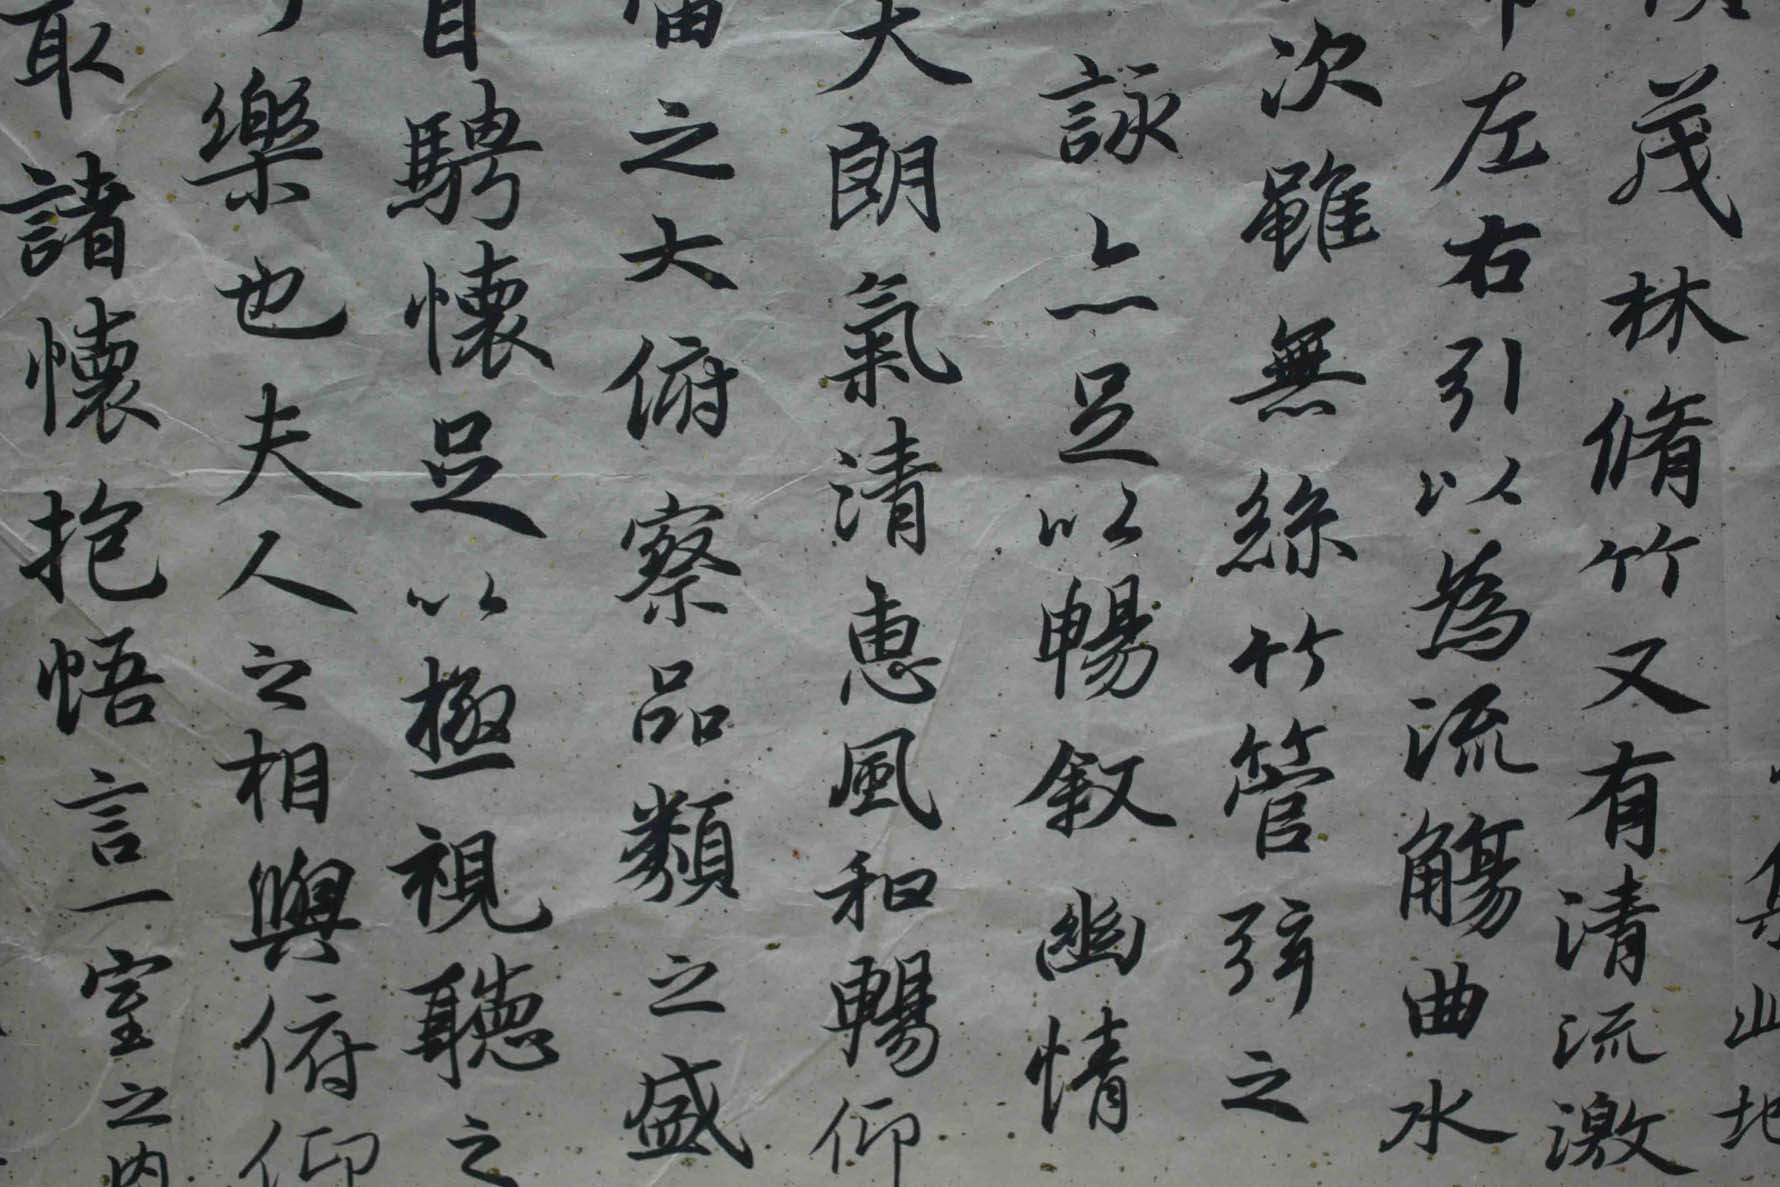 集此地
茂林脩竹又有清流激
左右引以為流觴曲水
次雖無絲竹管弦之
詠亦足以暢叙幽情
天朗氣清惠風和暢仰
宙之大俯察品類之盛
目騁懷足以極視聽之
樂也夫人之相與俯仰
取諸懷抱悟言一室之内